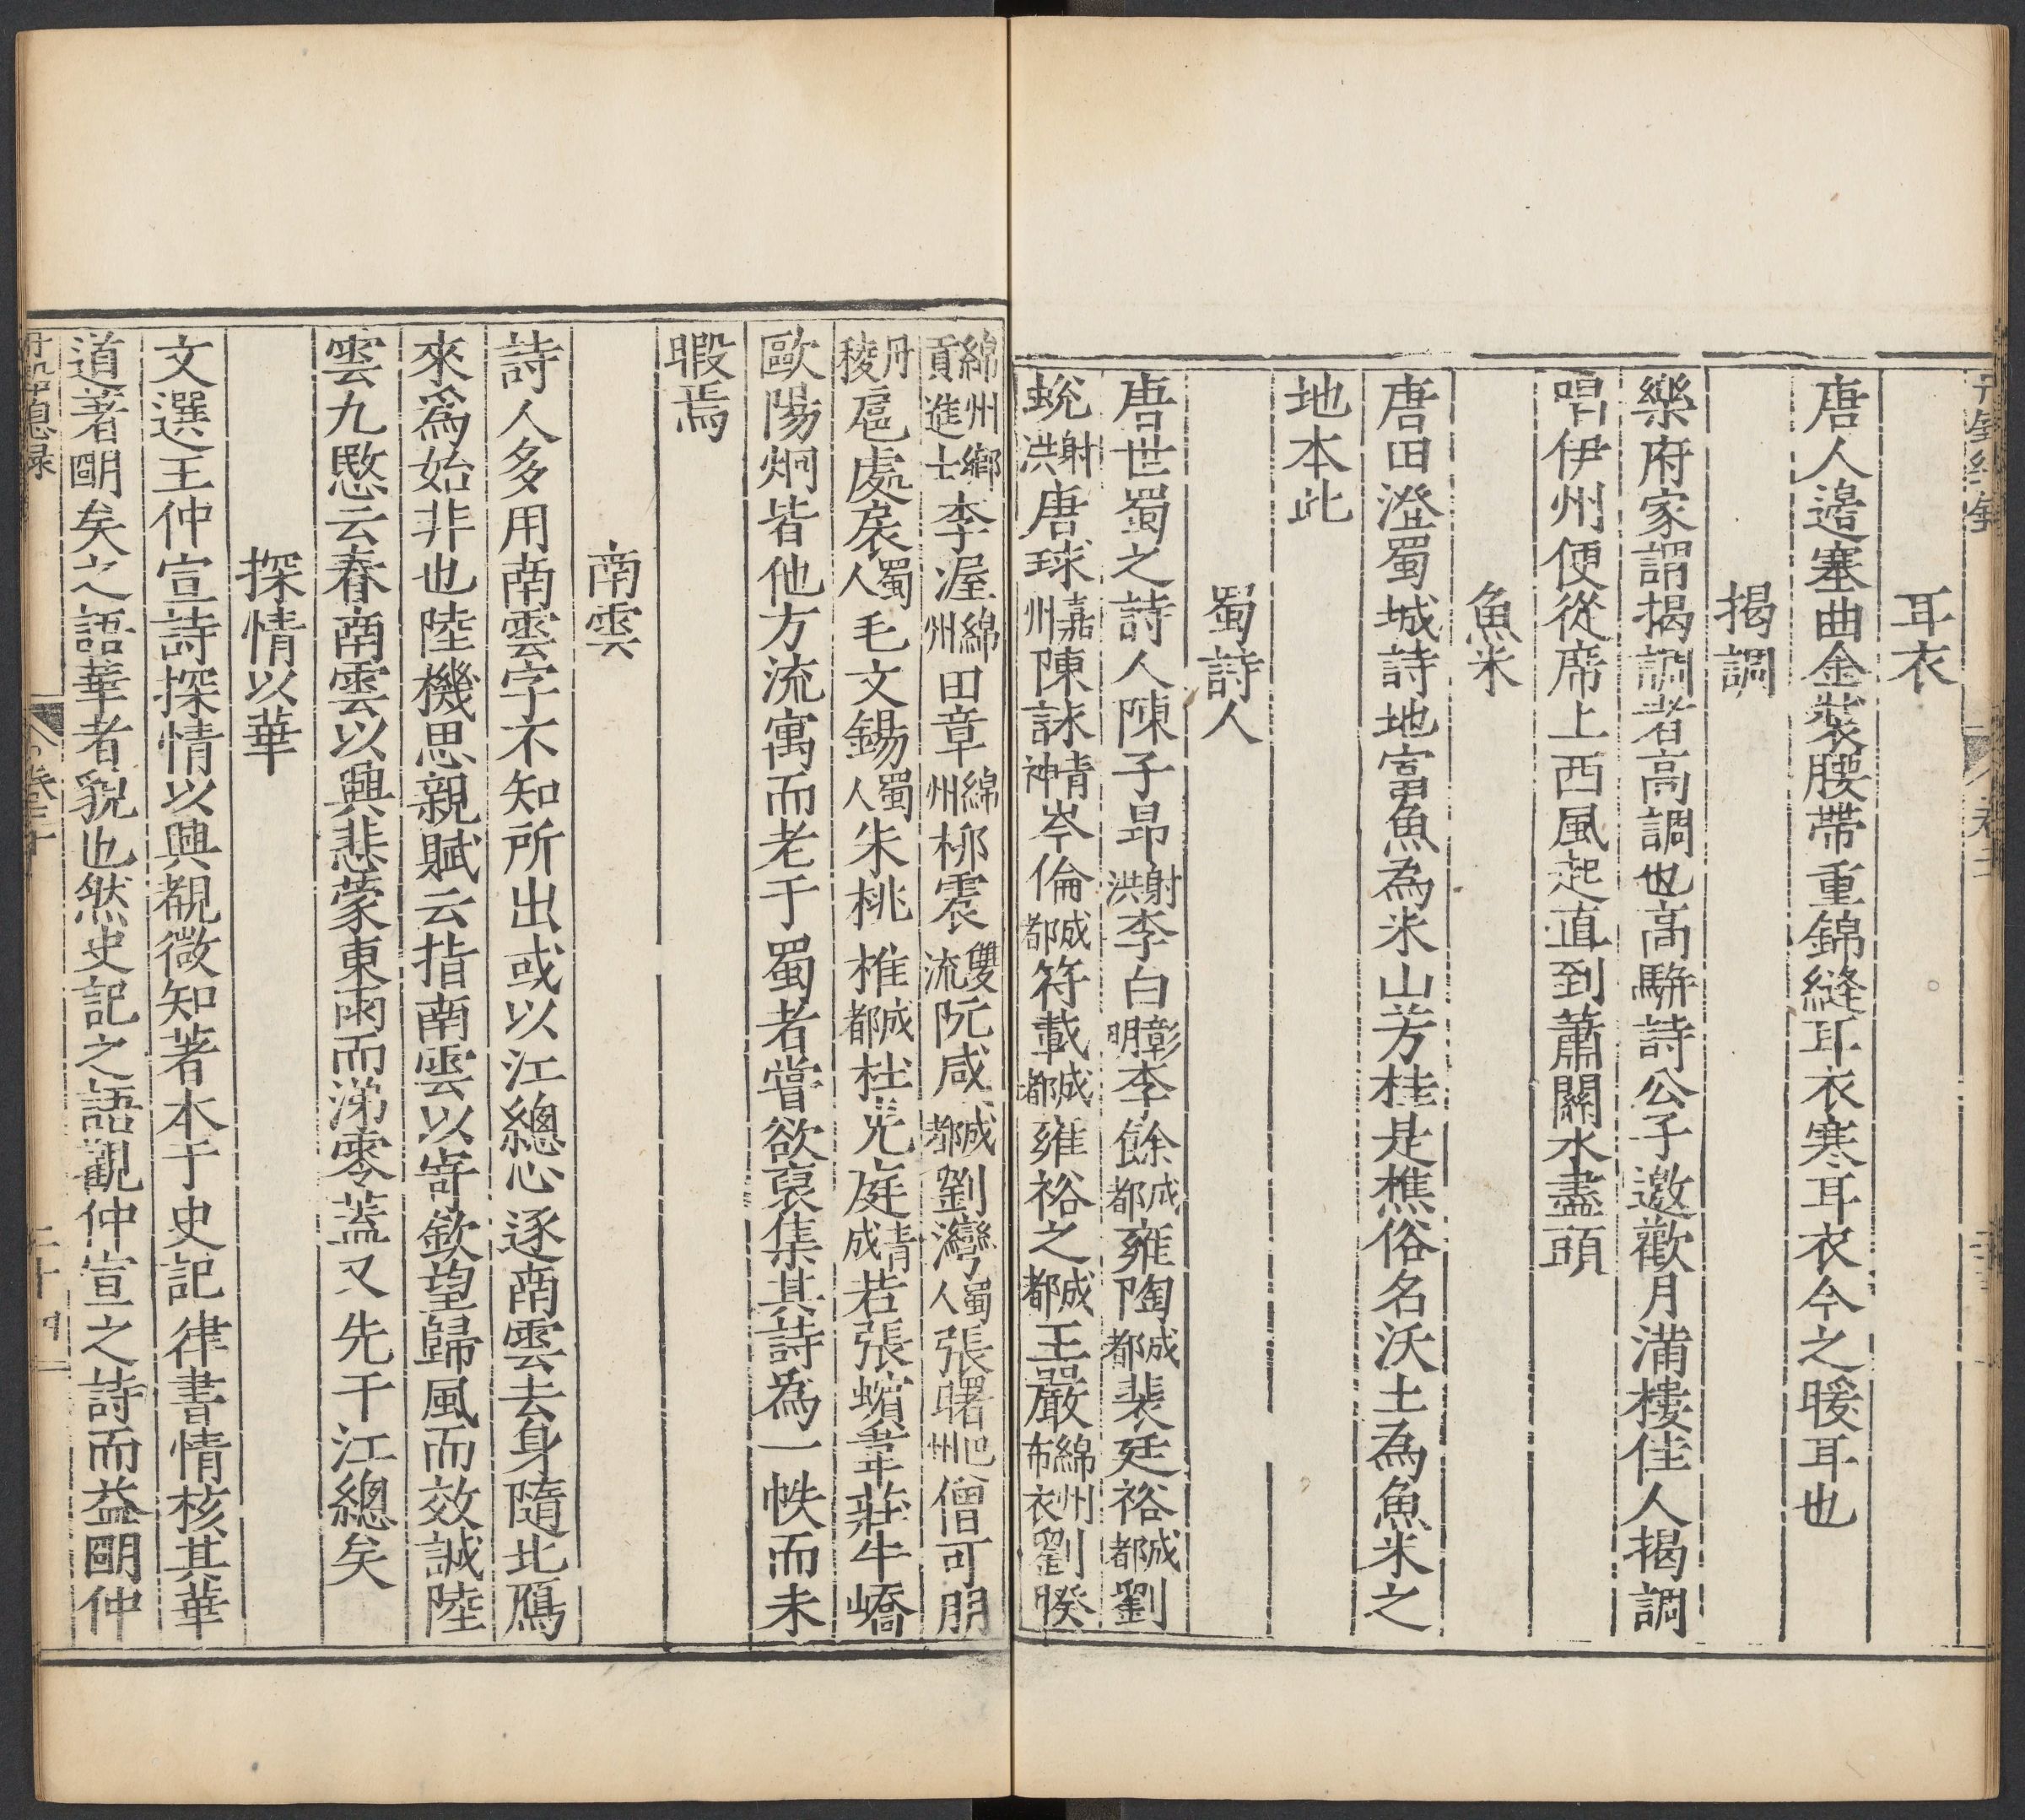 耳衣
唐人邉塞曲金裝腰帶重錦縫耳衣寒耳衣今之暖耳也
揭調
樂府家謂揭調者高調也高駢詩公子邀歡月滿樓佳人揭調
唱伊州便從席上西風起直到蕭關水盡頭
魚米
唐田澄蜀城詩地富魚為米山芳桂是樵俗名沃土為魚米之
地本此
蜀詩人
唐世蜀之詩人陳子昻射洪李白彰明李餘成都雍陶成都裴廷裕成都劉
蛻射洪唐球嘉州陳詠青神岑倫成都符載成都雍裕之成都王嚴綿州布衣劉暌
綿州鄉貢進士李渥綿州田章綿州柳震雙流阮咸成都劉灣蜀人張曙巴州僧可朋
丹稜扈處扆蜀人毛文錫蜀人朱桃椎成都杜光庭青成若張蠙韋莊牛嶠
歐陽炯皆他方流寓而老于蜀者嘗欲裒集其詩為一帙而未
暇焉
南雲
詩人多用南雲字不知所出或以江總心逐南雲去身隨北鴈
來爲始非也陸機思親賦云指南雲以寄欽望歸風而效誠陸
雲九愍云眷南雲以興悲蒙東雨而涕零蓋又先于江總矣
探情以華
文選王仲宣詩探情以華覩微知著本于史記律書情核其華
道著明矣之語華者貌也然史記之語觀仲宣之詩而益明仲
卷三十
二十四